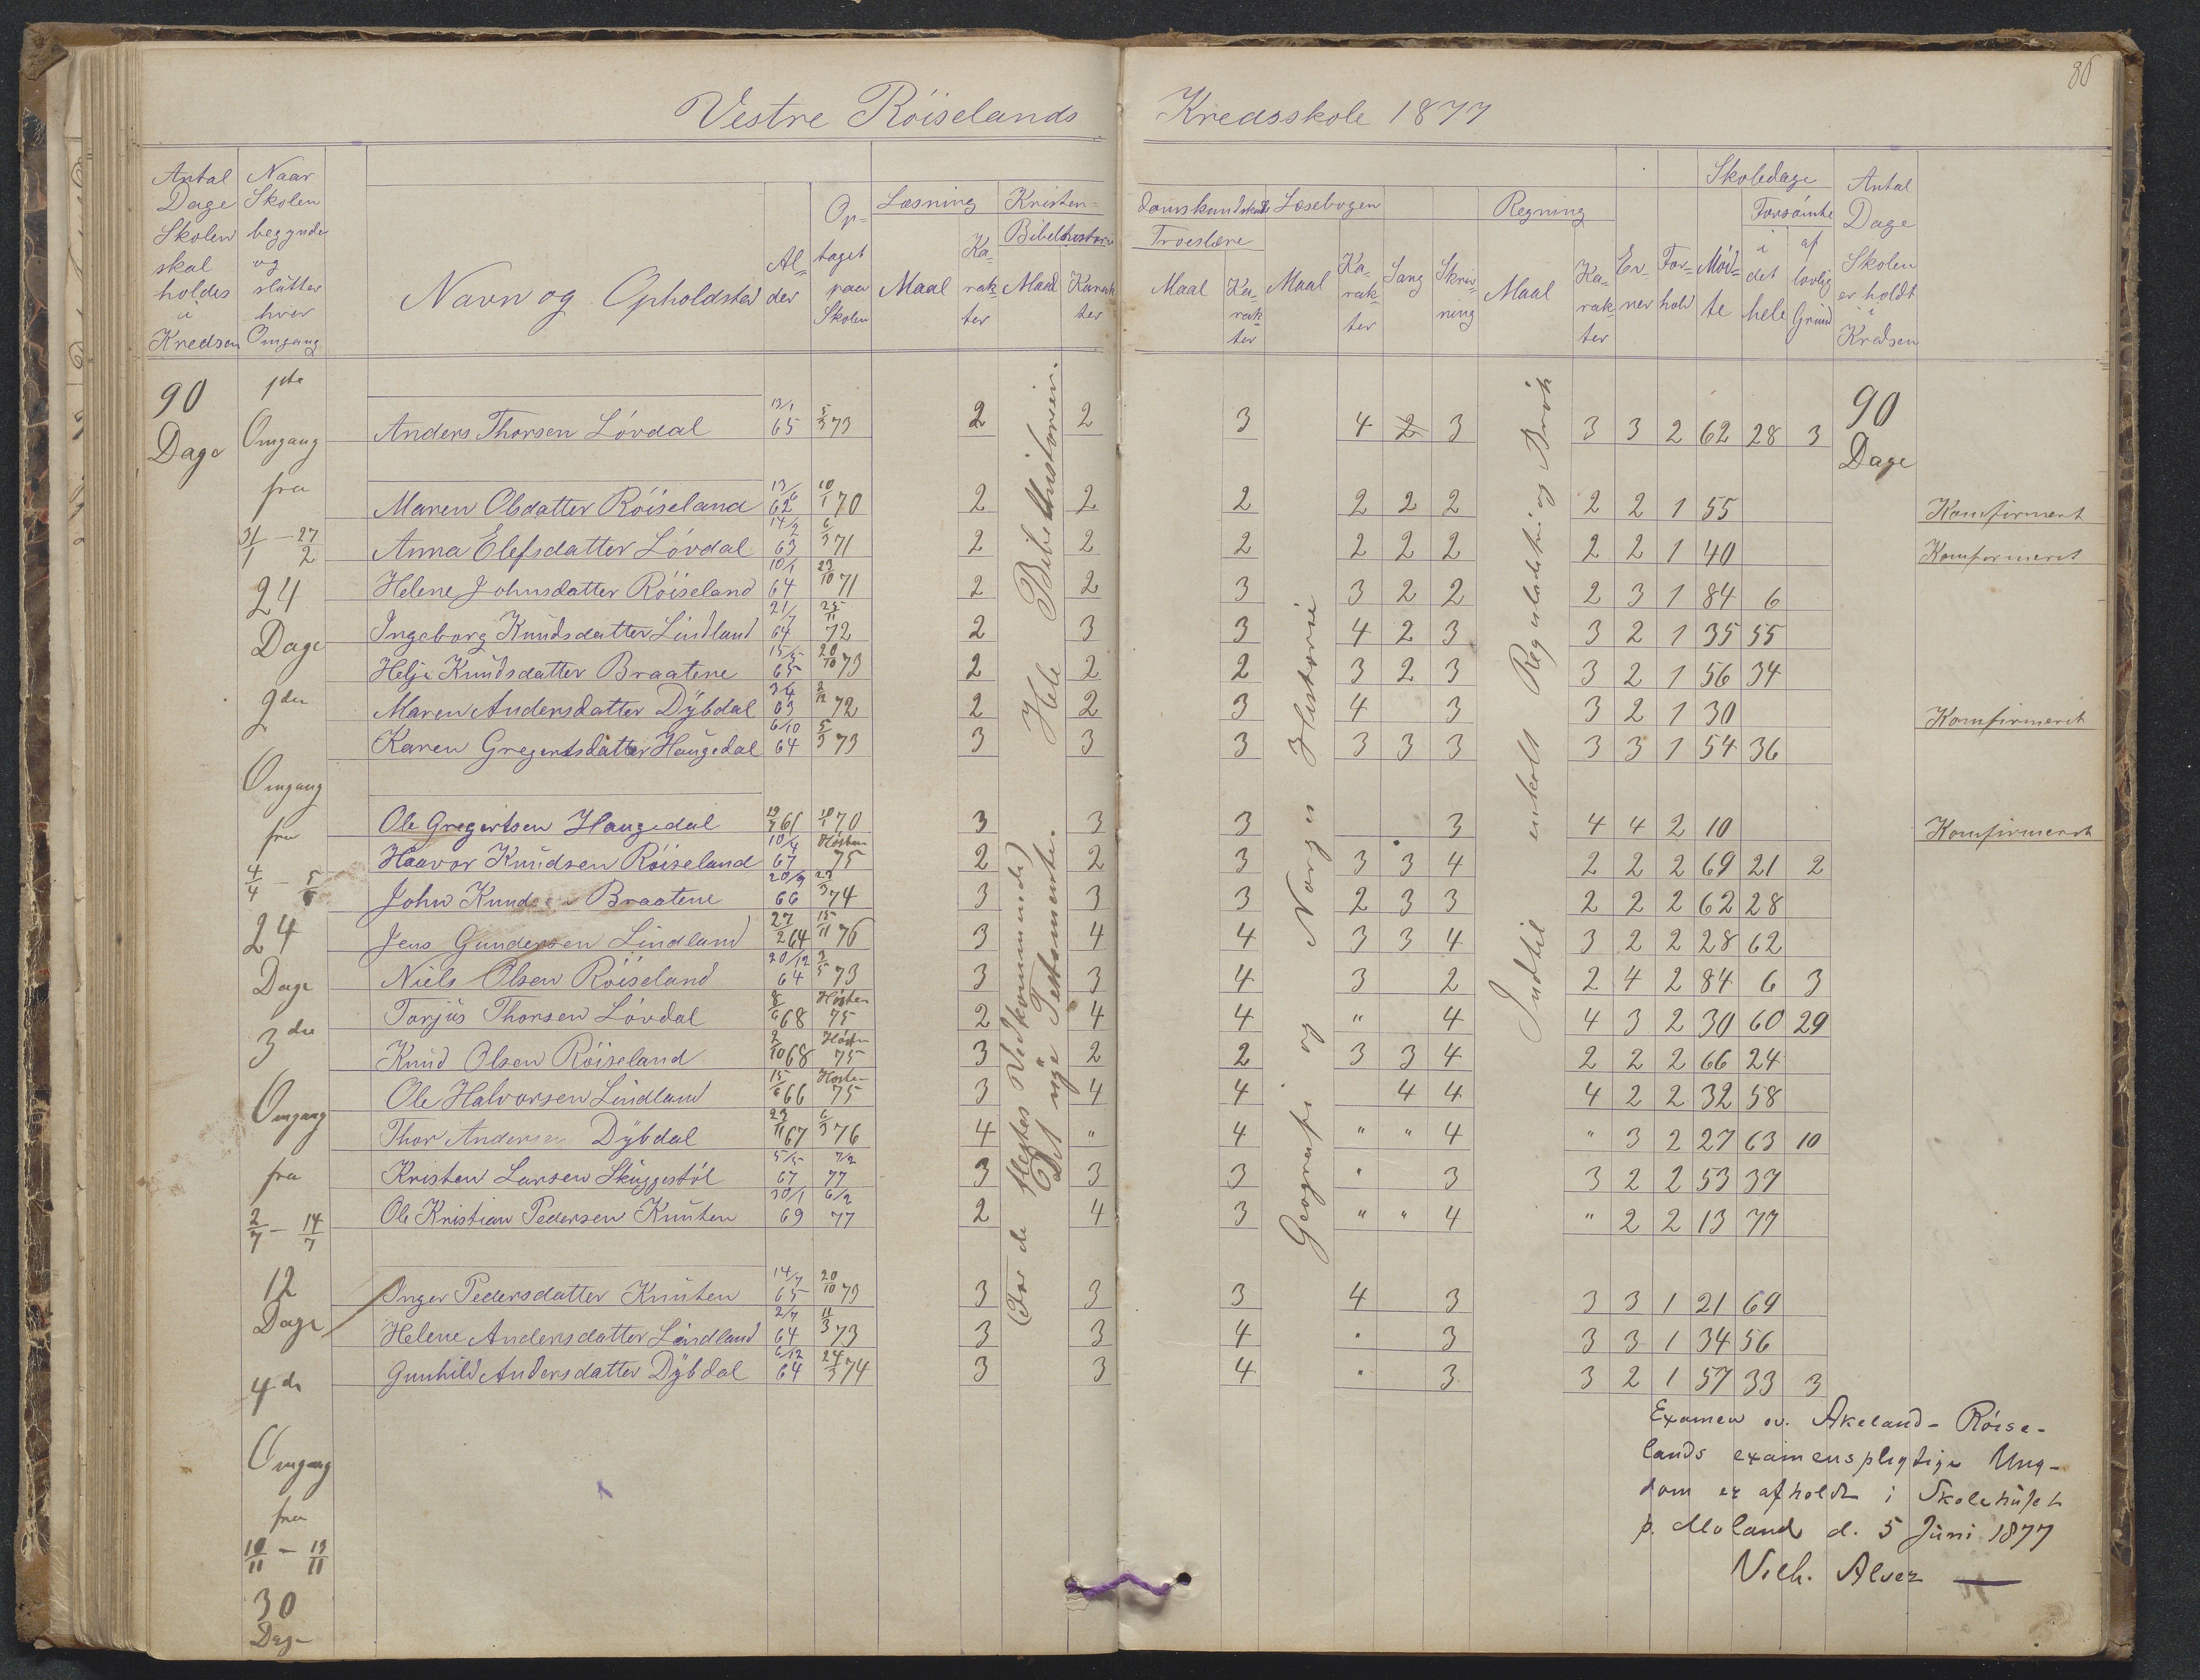 86
Vestre Röiselands Kredsskole 1877
Antal Dage Skolen skal holdes i Kredsen
Naar Skolen begynder og slutter hver Omgang
Navn og Opholdsted
Alder
Optaget paa Skolen
Læsning
Maal
Karakter
Kristendomskundskab
Bibelhistorie
Maal
Karakter
Troeslære
Maal
Karakter
Læsebogen
Maal
Karakter
Sang
Skrivning
Regning
Maal
Karakter
Evner
Forhold
Skoledage
Mødte
Forsømte
i det hele
af lovlig Grund
Antal Dage Skolen er holdt i Kredsen
90 Dage
1ste Omgang fra 31/1 - 27/2 24 Dage
2den Omgang fra 4/4 - 5/6 24 Dage
3die Omgang fra 2/7 - 14/7 12 Dage
4de Omgang fra 10/11 - 13/11 30 Dage
Anders Thorsen Lövdal 13/1 65 5/3 73 2 2 3 4 2 3 3 3 2 62 28 3 90 Dage
Maren Olsdatter Röiseland 13/6 62 10/1 70 2 2 2 2 2 2 2 2 1 55 Konfirmert
Anna Elefsdatter Lövdal 14/2 63 6/3 71 2 2 2 2 2 2 2 2 1 40 Konfirmeret
Helene Johnsdatter Röiseland 10/1 64 23/10 71 2 2 3 3 2 2 2 3 1 84 6
Ingeborg Knudsdatter Lindland 21/7 64 25/11 72 2 3 3 4 2 3 3 2 1 35 55
Helje Knudsdatter Braatene 15/5 65 20/10 73 2 2 2 3 2 3 3 2 1 56 34
Maren Andersdatter Dÿbdal 3/4 63 2/12 72 2 2 3 4 3 3 2 1 30 Konfirmeret
Karen Gregertsdatter Haugedal 6/10 64 5/3 73 3 3 3 3 3 3 3 3 1 54 36
Ole Gregertsen Haugedal 61 10/1 70 3 3 3 3 4 4 2 10 Konfirmeret
Haavor Knudsen Röiseland 10/4 67 Hösten 75 2 2 3 3 3 4 2 2 2 69 21 2
John Knudsen Braatene 20/9 66 23/3 74 3 3 3 2 3 3 2 2 2 62 28
Jens Gundersen Lindland 27/2 64 15/11 76 3 4 4 3 3 4 3 2 2 28 62
Niels Olsen Röiseland 20/12 64 3/5 73 3 3 4 3 2 2 4 2 84 6 3
Torjus Thorsen Lövdal 8/6 68 Hösten 75 2 4 4 " 4 4 3 2 30 60 29
Knud Olsen Röiseland 2/10 68 Hösten 75 3 2 2 3 3 4 2 2 2 66 24
Ole Halvorsen Lindland 15/6 66 Hösten 75 3 4 4 4 4 4 2 2 32 58
Thor Andersen Dÿbdal 23/11 67 6/3 76 4 " 4 " " 4 " 3 2 27 63 10
Kristen Larsen Skuggestöl 5/5 67 7/2 77 3 3 3 " 3 3 2 2 53 37
Ole Kristian Pedersen Knuten 30/1 69 6/2 77 2 4 3 " " 4 " 2 2 13 77
Inger Pedersdatter Knuten 14/7 65 20/10 73 3 3 3 4 3 3 3 1 21 69
Helene Andersdatter Lindland 2/7 64 11/3 73 3 3 4 " 3 3 3 1 34 56
Gunhild Andersdatter Dÿbdal 6/12 64 24/3 74 3 3 4 " 3 3 2 1 57 33 3
Hele Bibelhistorien.
(For de flestes Vedkommende)
Det nye Testamente.
Geografi og Norges Historie
Indtil enkelt Reguladetri og Brök
Examen ov. Akeland-Röise-
lands examenspligtige Ung-
dom er afholdt i Skolehuset
p. Moland d. 5 Juni 1877
Vilh. Alver